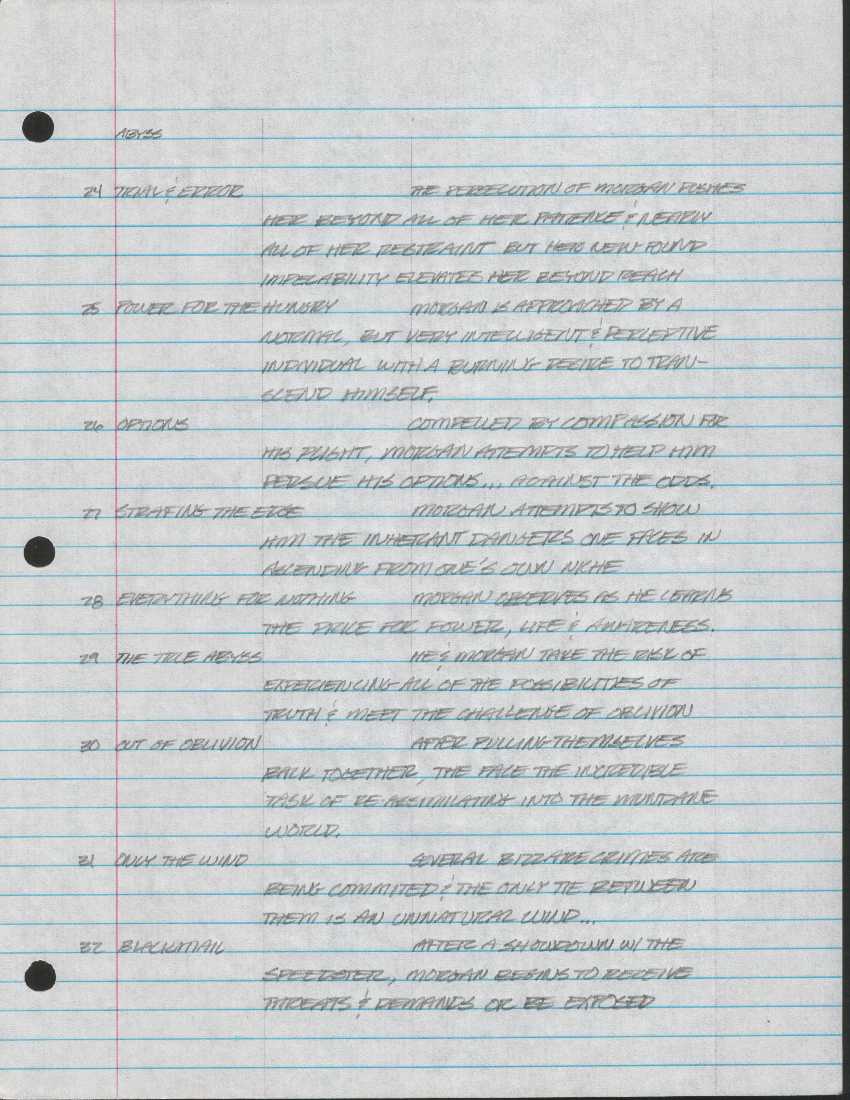 ABYSS
24 TRIAL & ERROR THE PERSECUTION OF MORGAN PUSHES
HER BEYOND ALL OF HER PATIENCE & NEARLY
ALL OF HER RESTRAINT BUT HER NEW FOUND
IMPECABILITY ELEVATES HER BEYOND REACH
25 POWER FOR THE HUNGRY MORGAN IS APPROACHED BY A
NORMAL, BUT VERY INTELLIGENT & PERCEPTIVE
INDIVIDUAL WITH A BURNING DESIRE TO TRAN-
SCEND HIMSELF.
26 OPTIONS COMPELLED BY COMPASSION FOR
HIS PLIGHT, MORGAN ATTEMPTS TO HELP HIM
PERSUE HIS OPTIONS... AGAINST THE ODDS.
27 STRAFING THE EDGE MORGAN ATTEMPTS TO SHOW
HIM THE INHERANT DANGERS ONE FACES IN
ASCENDING FROM ONE'S OWN NICHE
28 EVERYTHING FOR NOTHING MORGAN OBSERVES AS HE LEARNS
THE PRICE FOR POWER, LIFE & AWARENESS.
29 THE TRUE ABYSS HE & MORGAN TAKE THE RISK OF
EXPERIENCING ALL OF THE POSSIBILITIES OF
TRUTH & MEET THE CHALLENGE OF OBLIVION
30 OUT OF OBLIVION AFTER PULLING THEMSELVES
BACK TOGETHER, THE FACE THE INCREDIBLE
TASK OF RE-ASSIMILATING INTO THE MUNDANE
WORLD.
31 ONLY THE WIND SEVERAL BIZZARE CRIMES ARE
BEING COMMITED & THE ONLY TIE BETWEEN
THEM IS AN UNNATURAL WIND...
32 BLACKMAIL AFTER A SHOWDOWN W/ THE
SPEEDSTER, MORGAN BEGINS TO RECEIVE
THREATS & DEMANDS OR BE EXPOSED